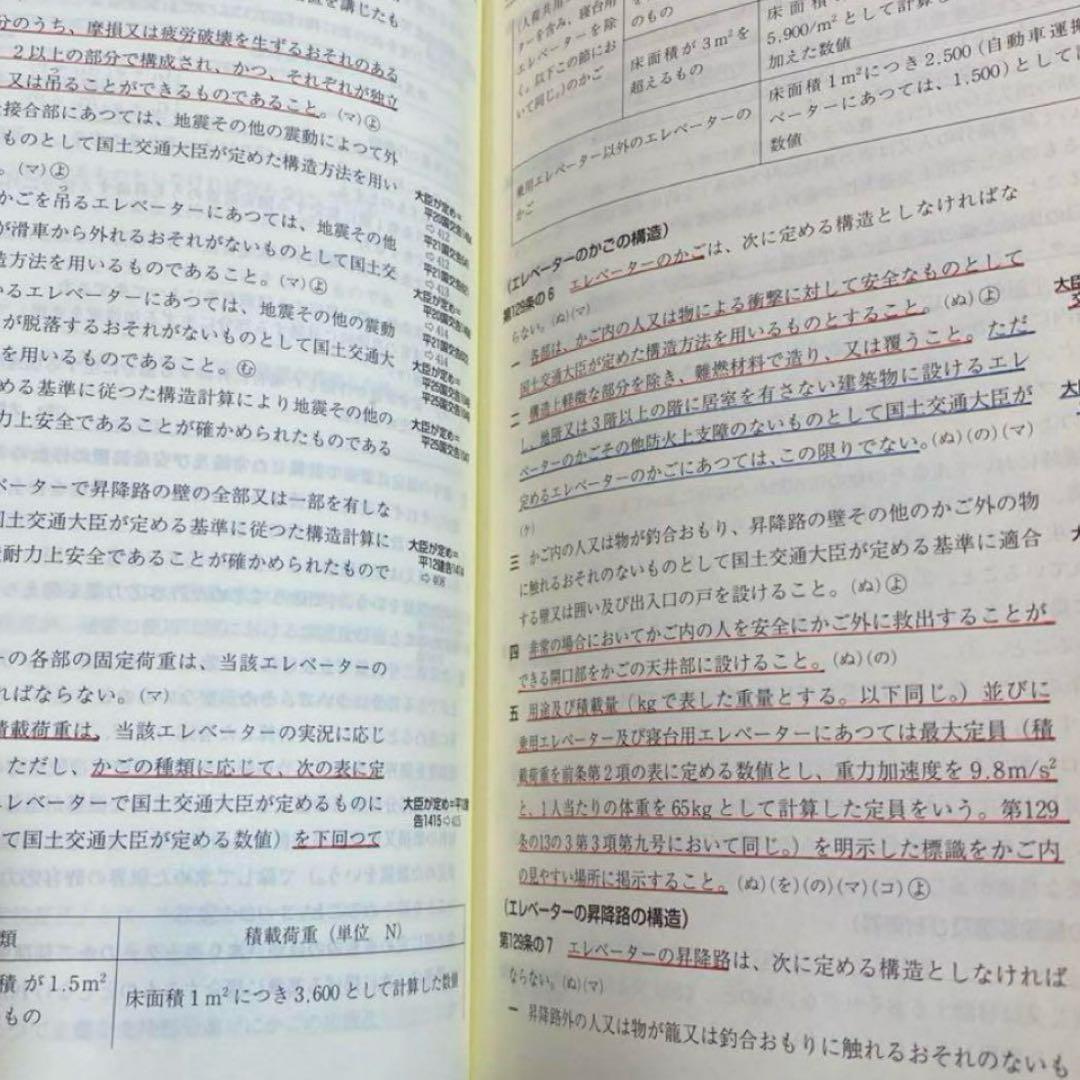 置を講じたも
分のうち、摩損又は疲労破壊を生ずるおそれのある
2以上の部分で構成され、かつ、それぞれが独立
又は吊ることができるものであること。(マ)㋵
接合部にあつては、地震その他の震動によつて外
ものとして国土交通大臣が定めた構造方法を用い
。(マ)㋵
かごを吊るエレベーターにあつては、地震その他
が滑車から外れるおそれがないものとして国土交
造方法を用いるものであること。(マ)㋵
いるエレベーターにあつては、地震その他の震動
が脱落するおそれがないものとして国土交通大
を用いるものであること。㋰
める基準に従つた構造計算により地震その他の
力上安全であることが確かめられたものである
ベーターで昇降路の壁の全部又は一部を有しな
国土交通大臣が定める基準に従つた構造計算に
耐力上安全であることが確かめられたもので
大臣が定め=
平12建告1414
ーの各部の固定荷重は、当該エレベーターの
ればならない。(マ)
積載荷重は、当該エレベーターの実況に応じ
ただし、かごの種類に応じて、次の表に定
エレベーターで国土交通大臣が定めるものに
て国土交通大臣が定める数値)を下回つて
大臣が定め=平12建
告1415
類
積載荷重(単位 N)
積が1.5m²
もの
床面積1m²につき3,600として計算した数値
(人荷共用
ターを含み、寝台用
エレベーターを除
く。以下この節にお
いて同じ。)のかご
のもの
床面積が3m²を
超えるもの
5,900/m²として計算し
加えた数値
床面積1m²につき2,500(自動車運搬
ベーターにあつては、1,500)として
数値
乗用エレベーター以外のエレベーターの
かご
(エレベーターのかごの構造)
第129条の6 エレベーターのかごは、次に定める構造としなければな
らない。(ぬ)(マ)
一 各部は、かご内の人又は物による衝撃に対して安全なものとして
国土交通大臣が定めた構造方法を用いるものとすること。(ぬ)㋵
二 構造上軽微な部分を除き、難燃材料で造り、又は覆うこと。ただ
し、地階又は3階以上の階に居室を有さない建築物に設けるエレ
ベーターのかごその他防火上支障のないものとして国土交通大臣が
定めるエレベーターのかごにあつては、この限りでない。(ぬ)(の)(マ)
(ケ)
三 かご内の人又は物が釣合おもり、昇降路の壁その他のかご外の物
に触れるおそれのないものとして国土交通大臣が定める基準に適合
する壁又は囲い及び出入口の戸を設けること。(ぬ)㋵
四 非常の場合においてかご内の人を安全にかご外に救出することが
できる開口部をかごの天井部に設けること。(ぬ)(の)
五 用途及び積載量(kgで表した重量とする。以下同じ。)並びに
乗用エレベーター及び寝台用エレベーターにあつては最大定員(積
載荷重を前条第2項の表に定める数値とし、重力加速度を9.8m/s²
と、1人当たりの体重を65kgとして計算した定員をいう。第129
条の13の3第3項第九号において同じ。)を明示した標識をかご内
の見やすい場所に掲示すること。(ぬ)(を)(の)(マ)(コ)㋵
(エレベーターの昇降路の構造)
第129条の7 エレベーターの昇降路は、次に定める構造としなければ
ならない。(ぬ)(マ)
一 昇降路外の人又は物が籠又は釣合おもりに触れるおそれのないも
大臣